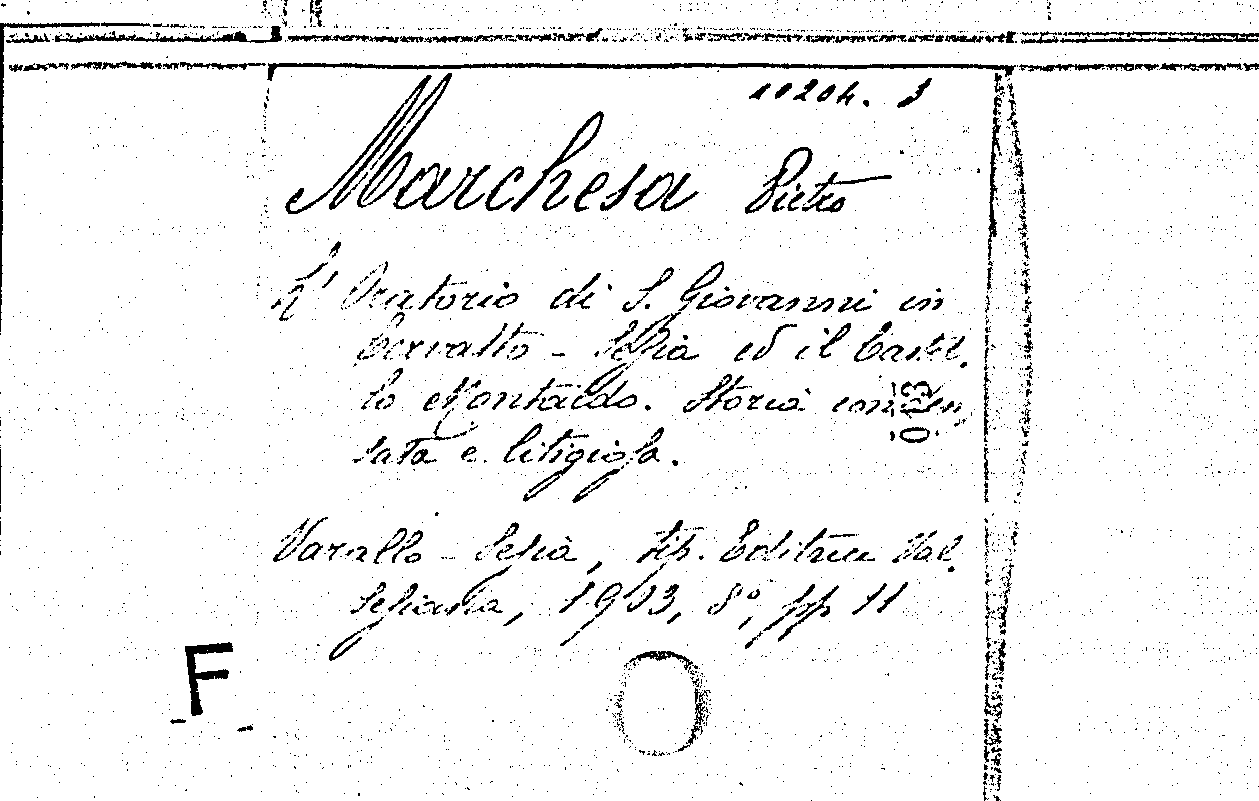 10204. 3
Marchesa Pietro
L' Oratorio di S. Giovanni in
Cervatto - Sesia ed il Castel-
lo Montaldo. Storia conden-
sata e litigiosa.
Varallo - Sesia, tip. Editrice Val-
sesiana, 1903, 8°, pp 11
F